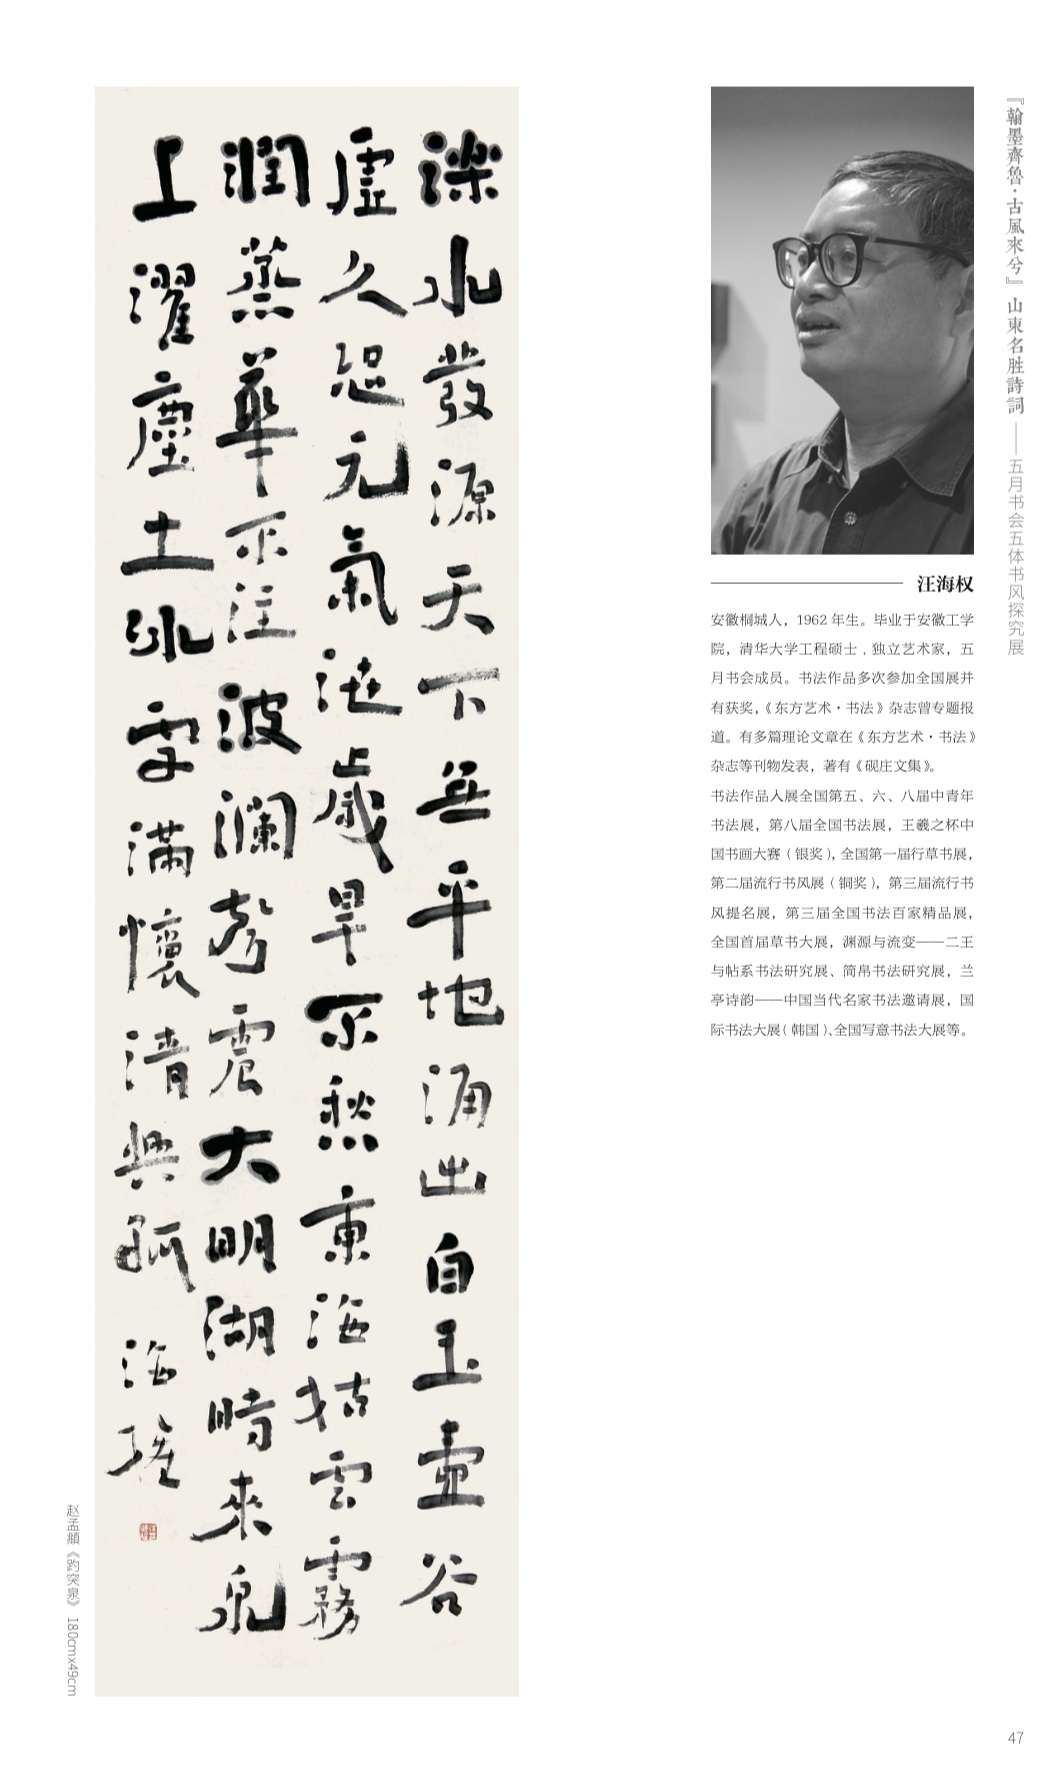 『翰墨齊魯·古風來兮』山東名胜詩詞——五月书会五体书风探究展
汪海权
安徽桐城人，1962 年生。毕业于安徽工学
院，清华大学工程硕士，独立艺术家，五
月书会成员。书法作品多次参加全国展并
有获奖，《东方艺术·书法》杂志曾专题报
道。有多篇理论文章在《东方艺术·书法》
杂志等刊物发表，著有《砚庄文集》。
书法作品人展全国第五、六、八届中青年
书法展，第八届全国书法展，王羲之杯中
国书画大赛（银奖），全国第一届行草书展，
第二届流行书风展（铜奖），第三届流行书
风提名展，第三届全国书法百家精品展，
全国首届草书大展，渊源与流变——二王
与帖系书法研究展、简帛书法研究展，兰
亭诗韵——中国当代名家书法邀请展，国
际书法大展（韩国）、全国写意书法大展等。
濼水發源天下無平地涌出自玉壺谷
虛久恐元氣泄歲旱不愁東海枯雲霧
潤蒸華不注波瀾聲震大明湖時來泉
上濯塵土冰雪滿懷清興孤 海權
赵孟頫《趵突泉》 180cmx49cm
47